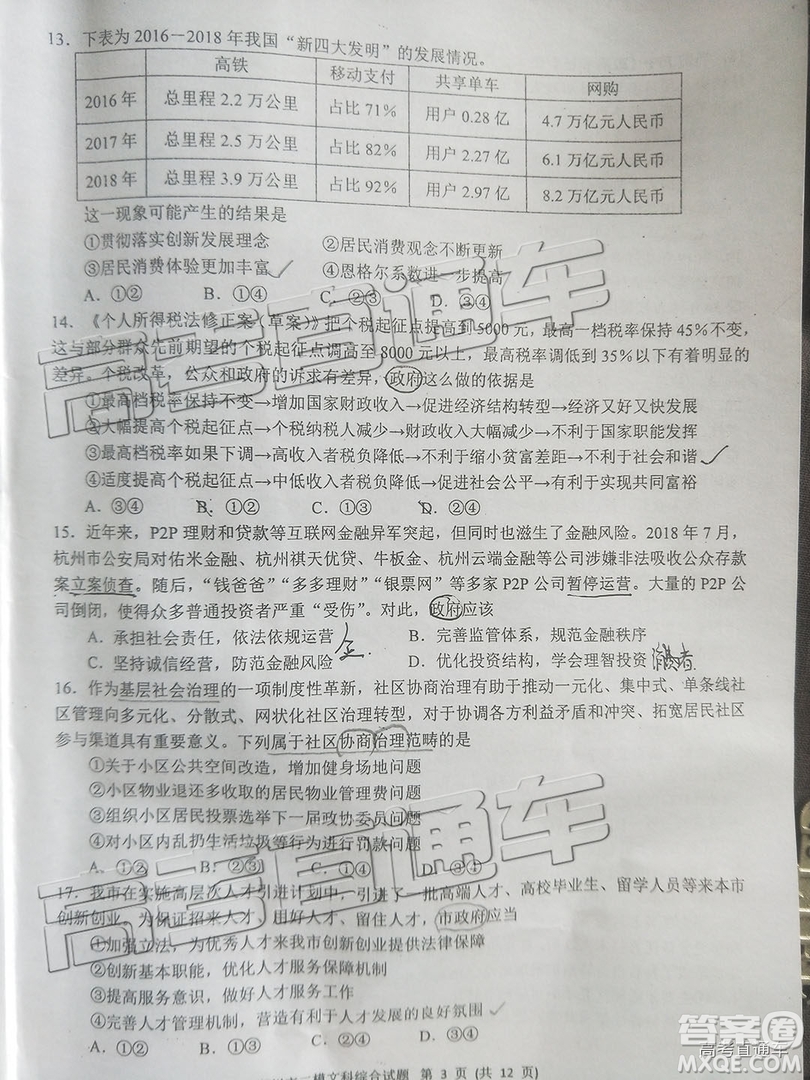 13. 下表为 2016--2018 年我国“新四大发明”的发展情况。
高铁 移动支付 共享单车 网购
2016 年 总里程 2.2 万公里 占比 71% 用户 0.28 亿 4.7 万亿元人民币
2017 年 总里程 2.5 万公里 占比 82% 用户 2.27 亿 6.1 万亿元人民币
2018 年 总里程 3.9 万公里 占比 92% 用户 2.97 亿 8.2 万亿元人民币
这一现象可能产生的结果是
①贯彻落实创新发展理念 ②居民消费观念不断更新
③居民消费体验更加丰富 ④恩格尔系数进一步提高
A. ①② B. ①④ C. ②③ D. ③④
14. 《个人所得税法修正案（草案）》把个税起征点提高到 5000 元，最高一档税率保持 45%不变，
这与部分群众先前期望的个税起征点调高至 8000 元以上，最高税率调低到 35%以下有着明显的
差异。个税改革，公众和政府的诉求有差异，政府这么做的依据是
①最高档税率保持不变→增加国家财政收入→促进经济结构转型→经济又好又快发展
②大幅提高个税起征点→个税纳税人减少→财政收入大幅减少→不利于国家职能发挥
③最高档税率如果下调→高收入者税负降低→不利于缩小贫富差距→不利于社会和谐
④适度提高个税起征点→中低收入者税负降低→促进社会公平→有利于实现共同富裕
A. ③④ B. ①② C. ①③ D. ②④
15. 近年来，P2P 理财和贷款等互联网金融异军突起，但同时也滋生了金融风险。2018 年 7 月，
杭州市公安局对佑米金融、杭州祺天优贷、牛板金、杭州云端金融等公司涉嫌非法吸收公众存款
案立案侦查。随后，“钱爸爸”“多多理财”“银票网”等多家 P2P 公司暂停运营。大量的 P2P 公
司倒闭，使得众多普通投资者严重“受伤”。对此，政府应该
A. 承担社会责任，依法依规运营 B. 完善监管体系，规范金融秩序
C. 坚持诚信经营，防范金融风险 企 D. 优化投资结构，学会理智投资 消费者
16. 作为基层社会治理的一项制度性革新，社区协商治理有助于推动一元化、集中式、单条线社
区管理向多元化、分散式、网状化社区治理转型，对于协调各方利益矛盾和冲突、拓宽居民社区
参与渠道具有重要意义。下列属于社区协商治理范畴的是
①关于小区公共空间改造，增加健身场地问题
②小区物业退还多收取的居民物业管理费问题
③组织小区居民投票选举下一届政协委员问题
④对小区内乱扔生活垃圾等行为进行罚款问题
A. ①② B. ②③ C. ①④ D. ③④
17. 我市在实施高层次人才引进计划中，引进了一批高端人才、高校毕业生、留学人员等来本市
创新创业。为保证招来人才、用好人才、留住人才，市政府应当
①加强立法，为优秀人才来我市创新创业提供法律保障
②创新基本职能，优化人才服务保障机制
③提高服务意识，做好人才服务工作
④完善人才管理机制，营造有利于人才发展的良好氛围
A. ①③ B. ①② C. ②④ D. ③④
模文科综合试题 第 3 页 (共 12 页)
高考直通车
高考直通车
高考直通车
答案圈
MXQE.COM